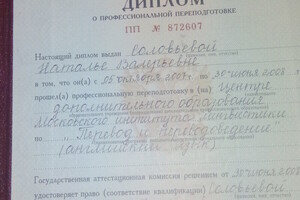 ДИПЛОМ
О ПРОФЕССИОНАЛЬНОЙ ПЕРЕПОДГОТОВКЕ
ПП № 872607
Настоящий диплом выдан Соловьевой
Наталье Валерьевне
в том, что он(а) с 05 октября 2007 г. по 30 июня 2008
прошел(а) профессиональную переподготовку в (на) Центре
дополнительного образования
Московского института лингвистики
по „Перевод и переводоведение
(английский язык)
Государственная аттестационная комиссия решением от 30 июня 2008
удостоверяет право (соответствие квалификации) Соловьевой